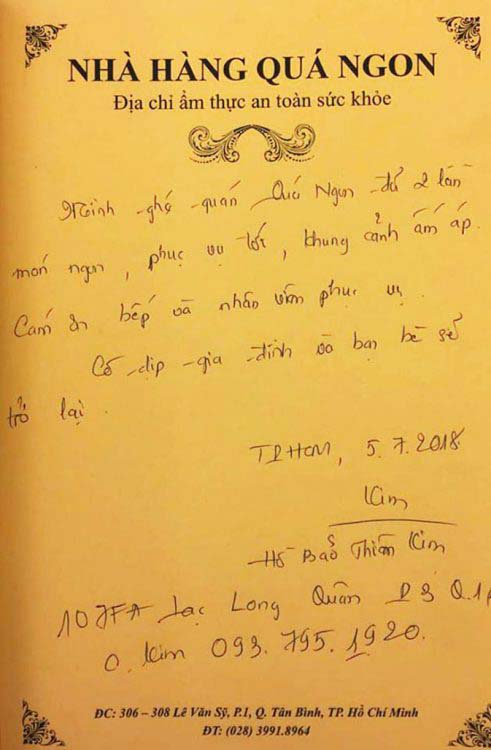 NHÀ HÀNG QUÁ NGON
Địa chỉ ẩm thực an toàn sức khỏe
Mình ghé quán Quá Ngon đã 2 lần
món ngon, phục vụ tốt, khung cảnh ấm áp.
Cám ơn bếp và nhân viên phục vụ.
Có dịp gia đình và bạn bè sẽ
trở lại.
TP HCM, 5.7.2018
Kim
Hồ Bảo Thiên Kim
Lạc Long Quân P3 Q.1
Kim 093.795.1920.
ĐC: 306 – 308 Lê Văn Sỹ, P.1, Q. Tân Bình, TP. Hồ Chí Minh
ĐT: (028) 3991.8964